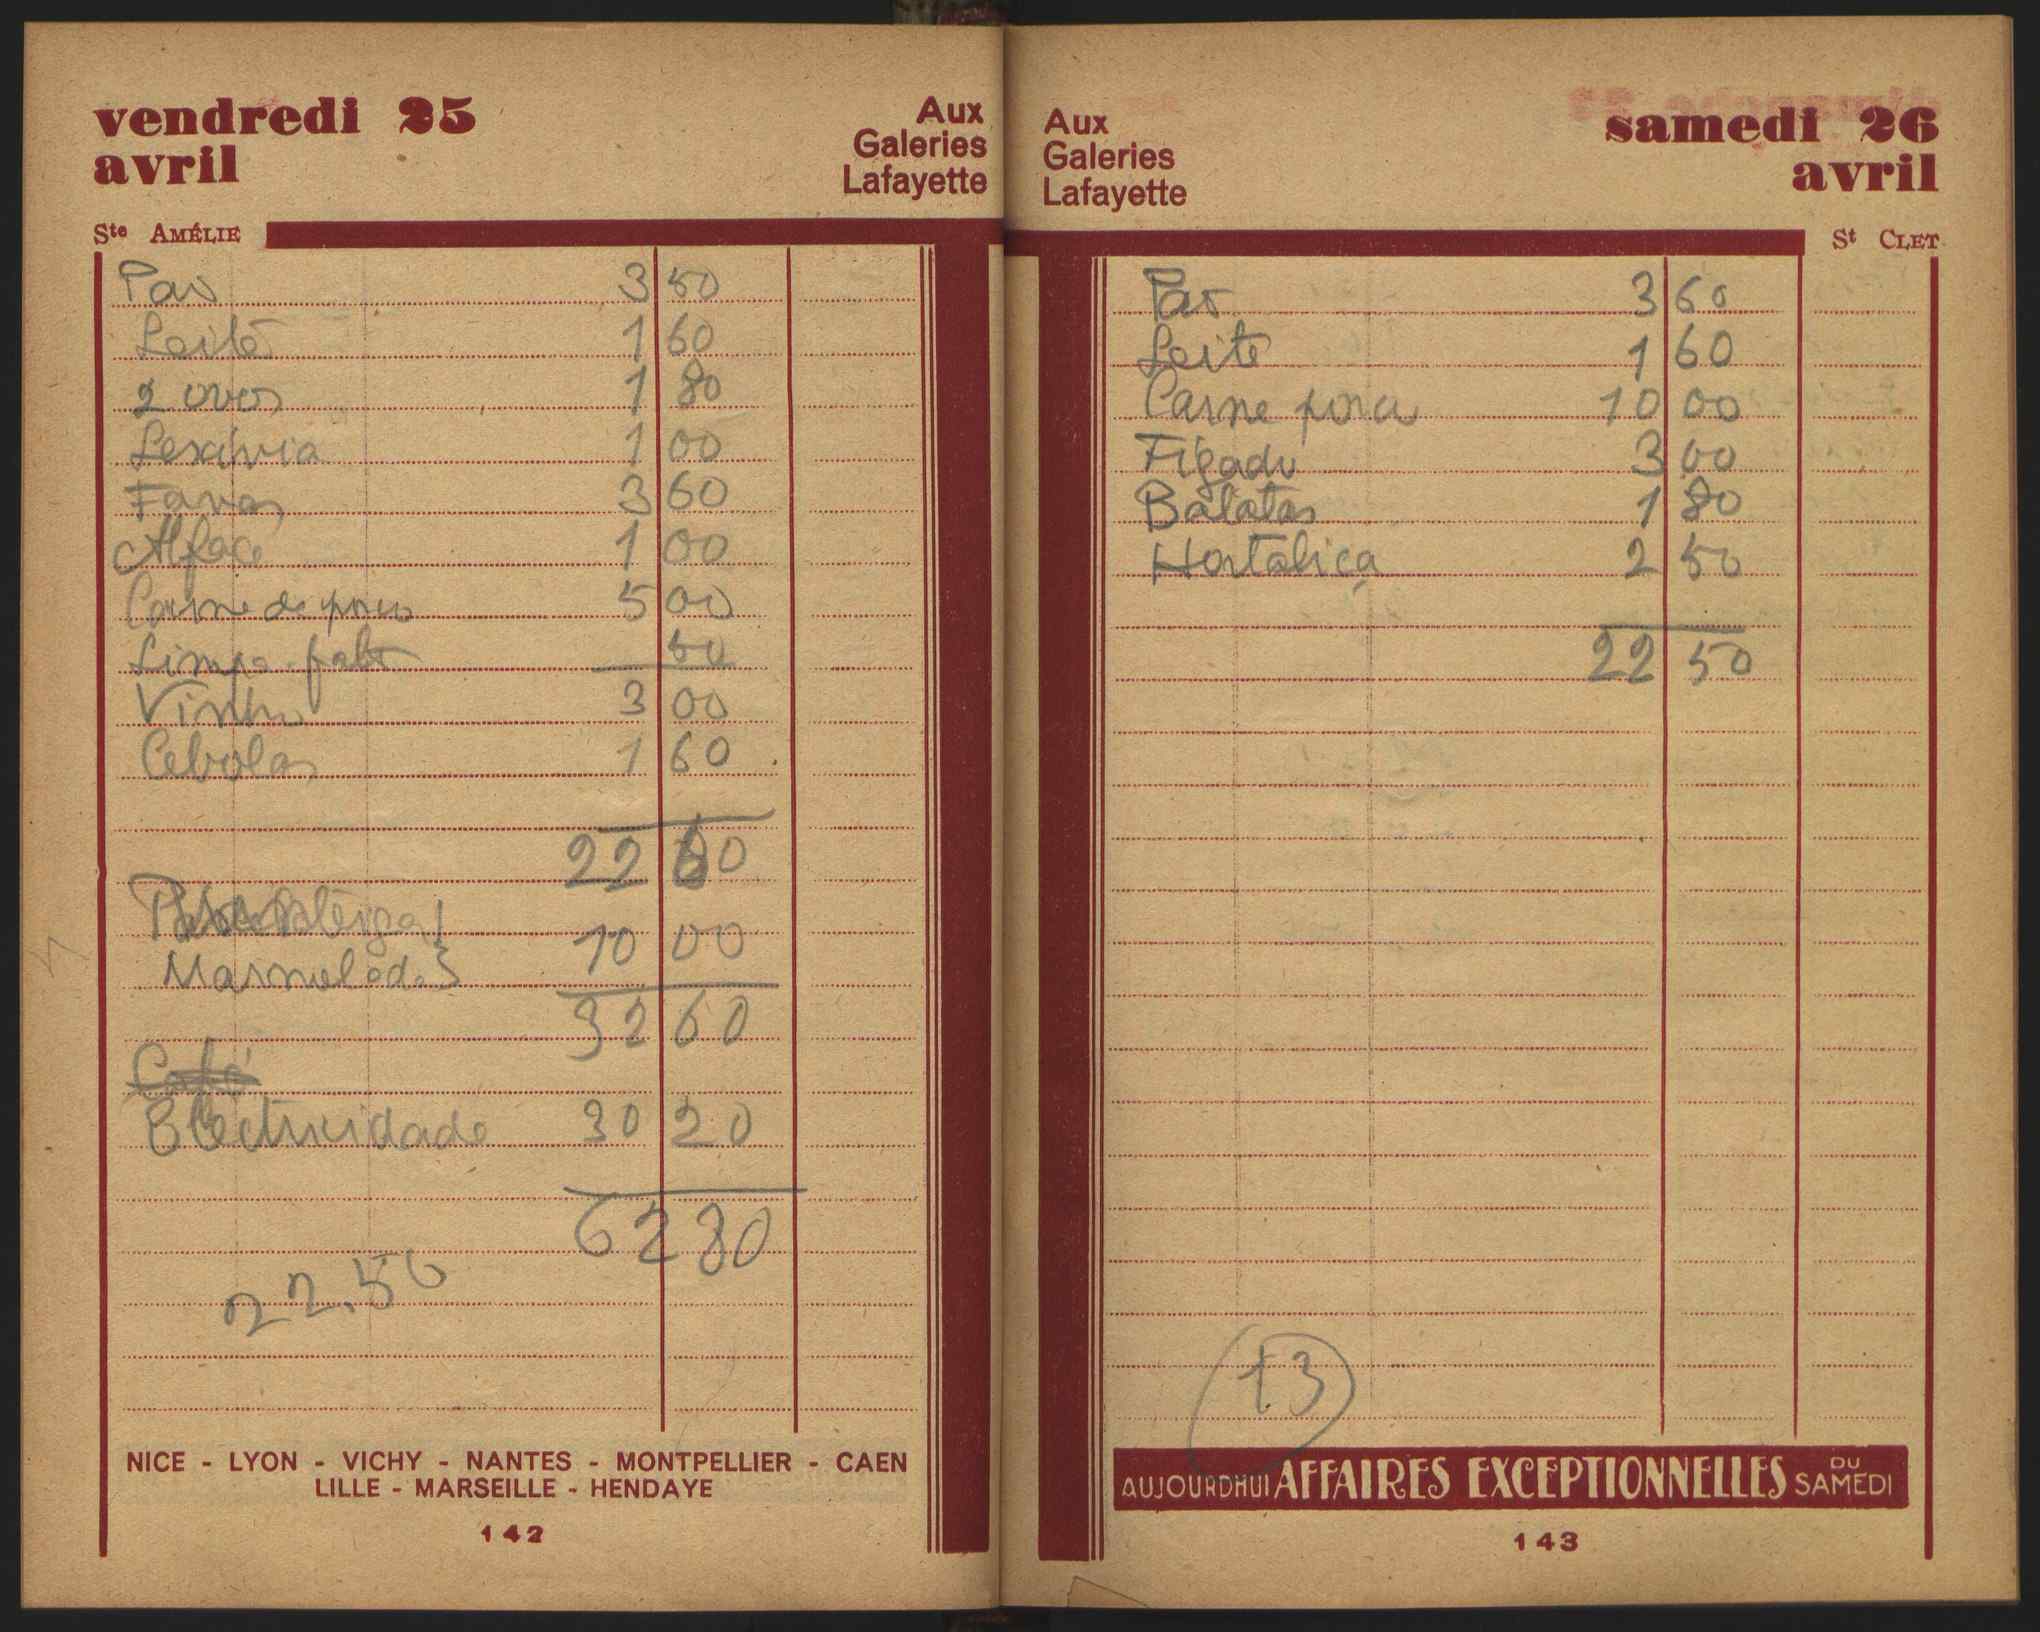 vendredi 25
avril
Aux
Galeries
Lafayette
Ste AMÉLIE
Pão 3 50
Leite 1 60
2 ovos 1 80
Lexivia 1 00
Favas 3 60
Alface 1 00
Carne de porco 5 00
Limpa-fato 50
Vinho 3 00
Cebolas 1 60
22 60
Marmelada 10 00
32 60
Café
Electricidade 30 20
62 80
22.50
NICE - LYON - VICHY - NANTES - MONTPELLIER - CAEN
LILLE - MARSEILLE - HENDAYE
142
Aux
Galeries
Lafayette
samedi 26
avril
St CLET
Pão 3 60
Leite 1 60
Carne porco 10 00
Figado 3 00
Batatas 1 80
Hortaliça 2 50
22 50
13
AUJOURDHUI AFFAIRES EXCEPTIONNELLES DU SAMEDI
143